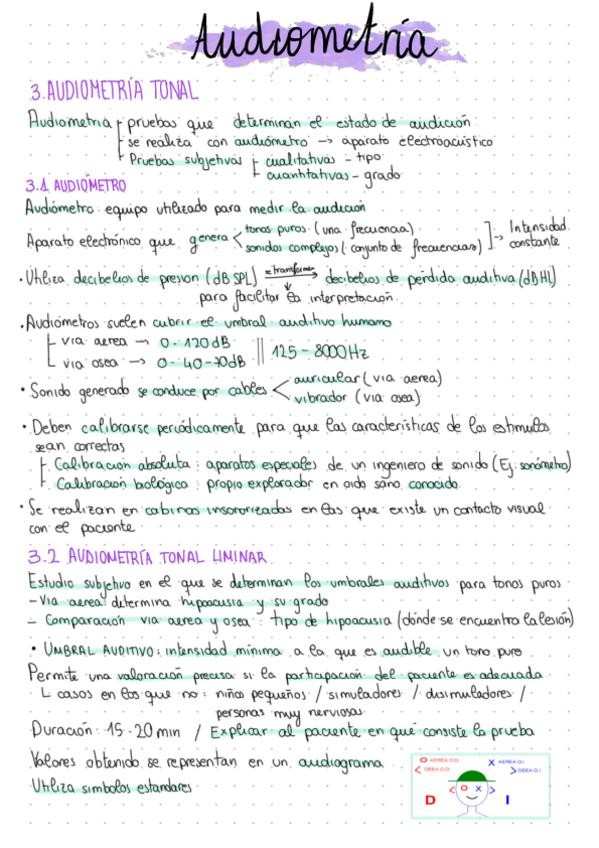 Audiometría
3. AUDIOMETRÍA TONAL
Audiometria pruebas que determinan el estado de audición
se realiza con audiómetro → aparato electroacústico
Pruebas subjetivas cualitativas - tipo
cuantitativas - grado
3.1 AUDIÓMETRO
Audiómetro: equipo utilizado para medir la audición
Aparato electrónico que genera < tonos puros (una frecuencia)
sonidos complejos (conjunto de frecuencias) ]→ Intensidad constante
· Utiliza decibelios de presión (dB SPL) se transforman → decibelios de pérdida auditiva (dB HL)
↓
para facilitar la interpretación.
. Audiómetros suelen cubrir el umbral auditivo humano
via aerea → 0 - 120 dB
via osea → 0 - 40-70dB || 125 - 8000 Hz
· Sonido generado se conduce por cables < auricular (via aerea)
vibrador (via osea)
· Deben calibrarse periódicamente para que las características de los estímulos
sean correctas
Calibración absoluta: aparatos especiales de un ingeniero de sonido (Ej: sonómetro)
Calibración biológica: propio explorador en oido sano conocido.
· Se realizan en cabinas insonorizadas en las que existe un contacto visual
con el paciente
3.2 AUDIOMETRÍA TONAL LIMINAR
Estudio subjetivo en el que se determinan los umbrales auditivos para tonos puros
- Via aerea: determina hipoacusia y su grado
- Comparación via aerea y osea: tipo de hipoacusia (dónde se encuentra la lesión)
• UMBRAL AUDITIVO: intensidad mínima a la que es audible un tono puro
Permite una valoración precisa si la participación del paciente es adecuada
L casos en los que no: niños pequeños / simuladores / disimuladores /
personas muy nerviosas
Duración: 15-20 min / Explicar al paciente en qué consiste la prueba
Valores obtenido se representan en un audiograma
Utiliza símbolos estandares
O AEREA O.D. X AEREA O.I.
< OSEA O.D. > OSEA O.I.
< O X >
D I